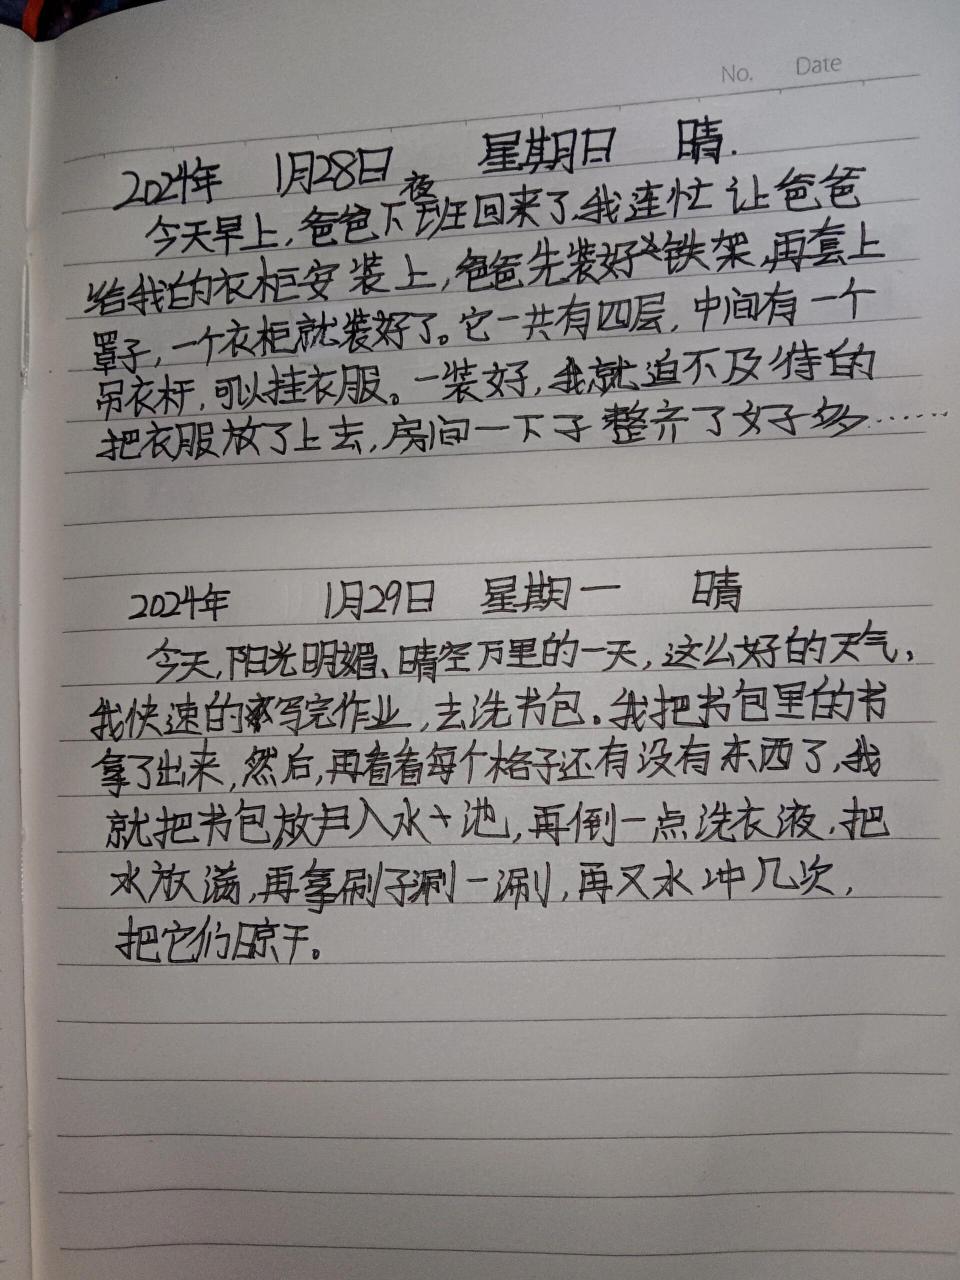 No. Date
2024年 1月28日 星期日 晴.
今天早上,爸爸下夜班回来了,我连忙让爸爸
给我的衣柜安装上,爸爸先装好铁架,再套上
罩子,一个衣柜就装好了。它一共有四层,中间有一个
吊衣杆,可以挂衣服。一装好,我就迫不及待的
把衣服放了上去,房间一下子整齐了好多……
2024年 1月29日 星期一 晴
今天,阳光明媚、晴空万里的一天,这么好的天气,
我快速的写完作业,去洗书包。我把书包里的书
拿了出来,然后,再看看每个格子还有没有东西了,我
就把书包放入水池,再倒一点洗衣液,把
水放满,再拿刷子涮一涮,再又水冲几次,
把它们晾干。